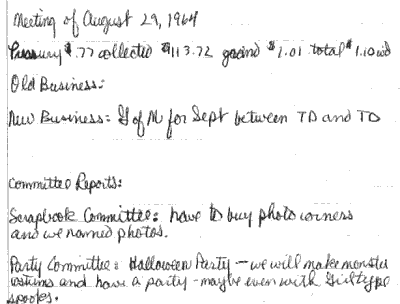 Meeting of August 29, 1964
Treasury $.77 collected $113.72 grand $1.01 total $1.10
Old Business:
New Business: G of M for Sept between TD and TD
Committee Reports:
Scrapbook Committee: have to buy photo corners
and we named photos.
Party Committee: Halloween Party - we will make monster
and have a party - maybe even with
spooks.